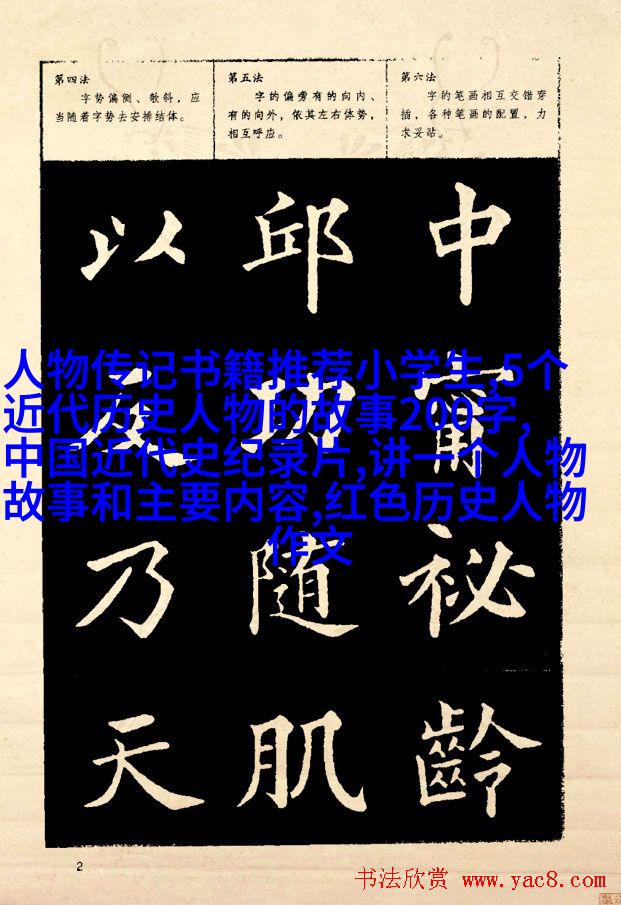 第四法
字势偏侧、欹斜，应
当随着字势去安排结体。
第五法
字的偏旁有的向内、
有的向外，依其左右体势，
相互呼应。
第六法
字的笔画相互交错穿
插，各种笔画的配置，力
求妥贴。
以 邱 中
及 功 甯
乃 随 祕
天 肌 齡
人物传记书籍推荐小学生,5个
近代历史人物的故事200字,
中国近代史纪录片,讲一个人物
故事和主要内容,红色历史人物
作文
2
书法欣赏 www.yac8.com